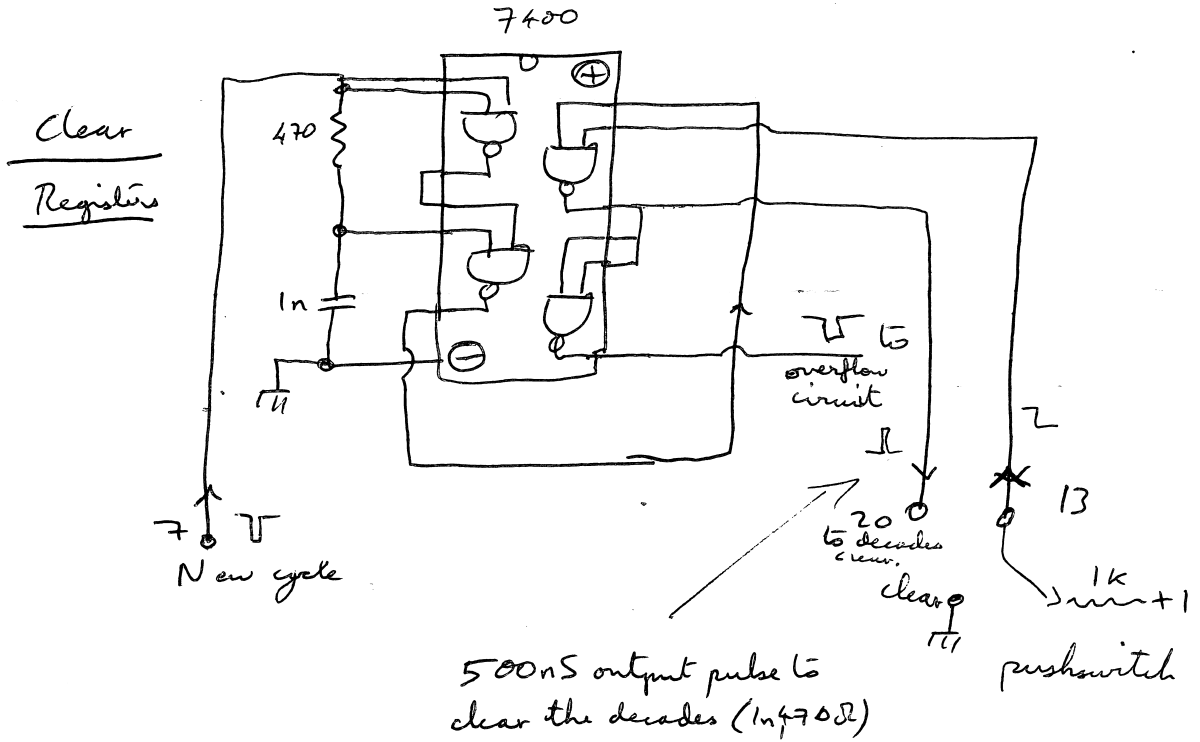 7400
Clear
Registers
470
+
1n
-
to
overflow
circuit
7
New cycle
20
to decades
clear.
clear
2
13
1K
+1
pushswitch
500nS output pulse to
clear the decades (1n,470Ω)